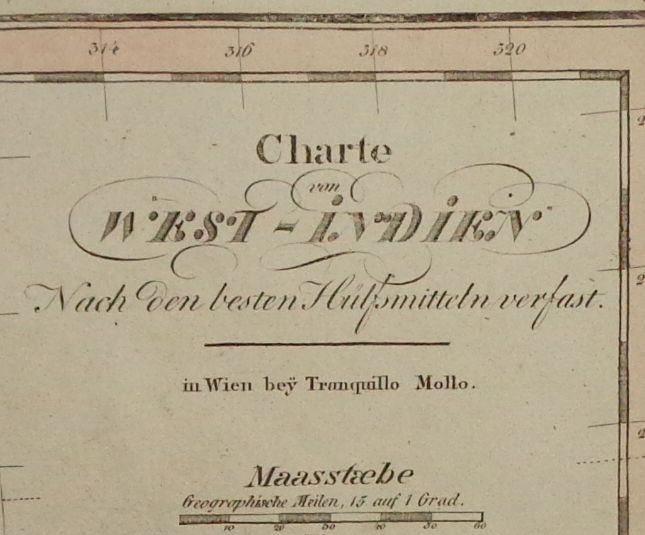 314 316 318 320
Charte
von
WEST-INDIEN
Nach den besten Hülfsmitteln verfast.
in Wien beÿ Tranquillo Mollo.
Maasstæbe
Geographische Meilen, 15 auf 1 Grad.
10 20 30 40 50 60